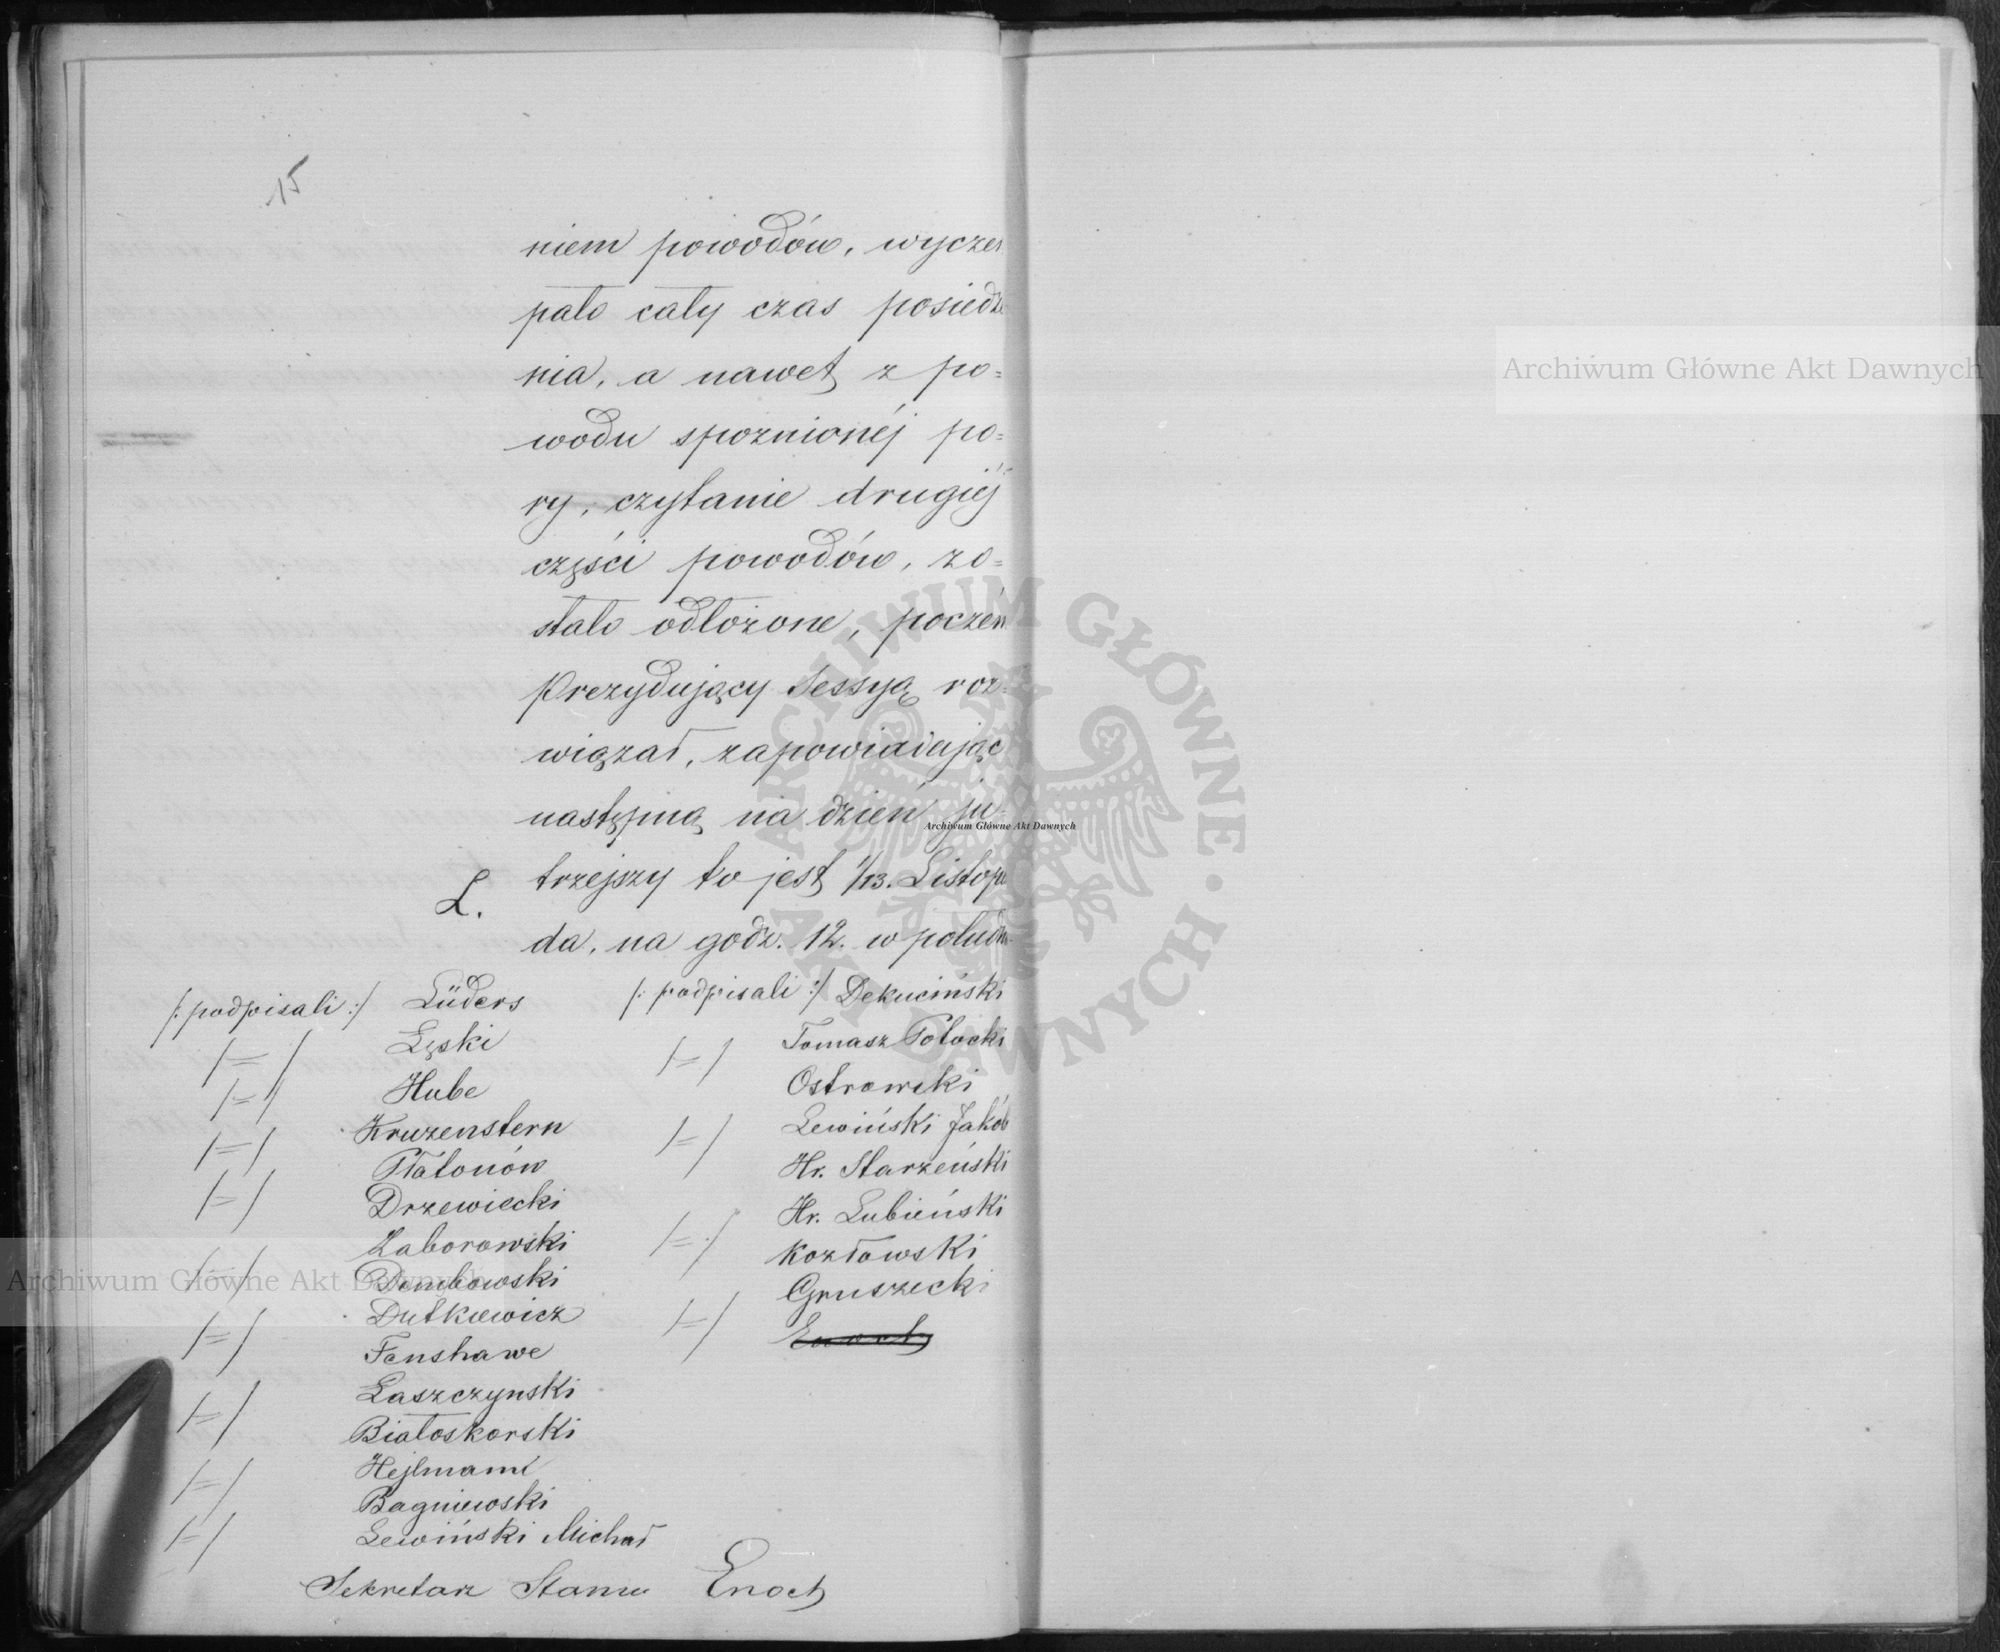 15
niem powodów, wyczer
pało cały czas posiedze
nia, a nawet z po=
wodu spoznionéj po=
ry, czytanie drugiéj
części powodów, zo=
stało odłożone, poczém
Prezydujący Sessyą roz=
wiązał, zapowiadając
następną na dzień ju=
trzejszy to jest 1/13. Listopa
L.
da, na godz. 12. w połudn
/: podpisali :/ Lüders
/=/ Łęski
/=/ Hube
Kruzenstern
/=/ Płatonów
/=/ Drzewiecki
Zaborowski
/=/ Dembowski
Dutkiewicz
/=/ Fanshawe
Łaszczynski
/=/ Białoskorski
Hejlmann
/=/ Bagniewski
/=/ Lewiński Michał
/: podpisali :/ Dekuciński
/=/ Tomasz Potocki
Ostrowski
/=/ Lewiński Jakób
Hr. Starzeński
/=/ Hr. Łubieński
Kozłowski
Gruszecki
/=/ Enoch
Sekretarz Stanu Enoch
Archiwum Główne Akt Dawnych
Archiwum Główne Akt Dawnych
Archiwum Główne Akt Dawnych
ARCHIWUM GŁÓWNE · AKT DAWNYCH ·